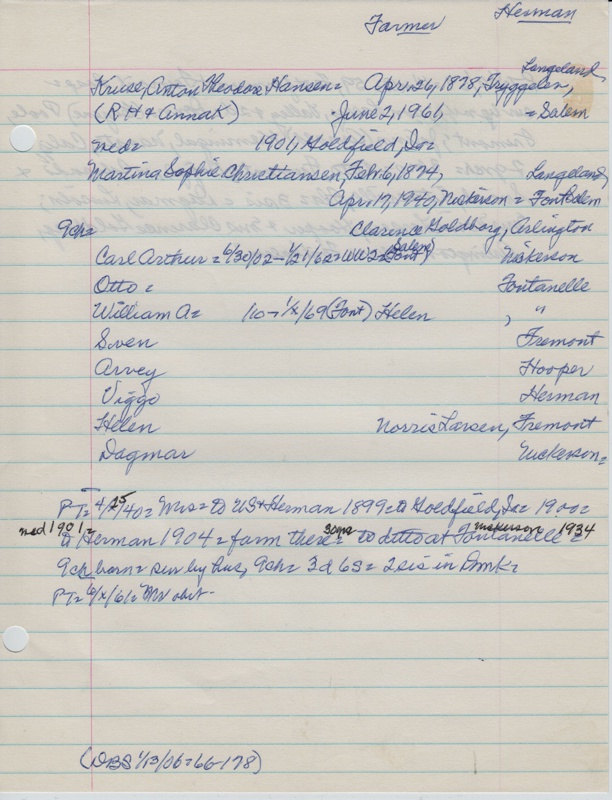 Farmer Herman
Langeland,
Kruse, Anton Theodor Hansen= Apr. 26, 1878, Tryggelen,
(R H & Anna K) June 2, 1961, = Salem
md= 1901, Goldfield, Ia=
Martina Sophie Christiansen, Feb. 6, 1874, Langeland,
Apr. 17, 1940, Nickerson = Font
9ch= Clarence Goldborg, Arlington
Carl Arthur = 6/30/02 – 1/21/62 = WW2= (Font) Nickerson
Salem
Otto = Fontanelle
William A= 10 – 1/x/69 (Font) Helen , "
Sven Fremont
Arvey Hooper
Viggo Herman
Helen Norris Larsen, Fremont
Dagmar Nickerson=
PT= 4/25/40= Mrs= to US & Herman 1899= to Goldfield, Ia= 1900=
md 1901= to Herman 1904 = farm there= to ditto at Fontanelle =
sons Nickerson 1934
9ch born = sur by hus, 9ch= 3d 6s = 2sis in Dmk=
PT= 6/x/61= Mr obit-
(DBS 1/13/06=66-178)